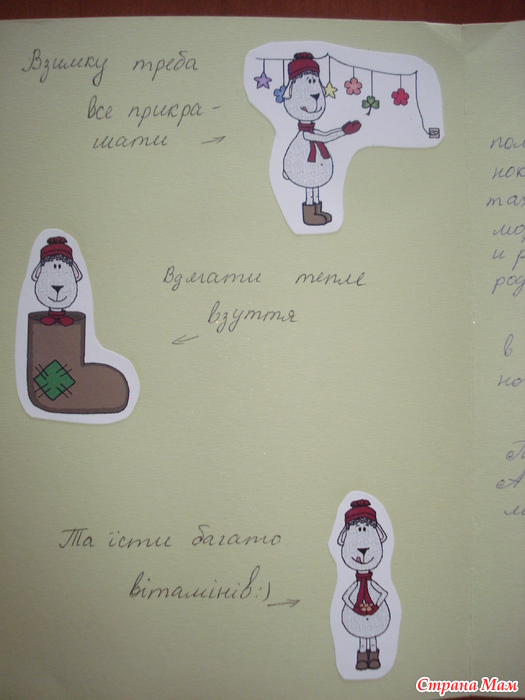 Взимку треба
все прикра-
шати →
Вдягати тепле
взуття
←
Та їсти багато
вітамінів:) →
пол
нок
тах
мор
и р
род
в
но
Страна Мам